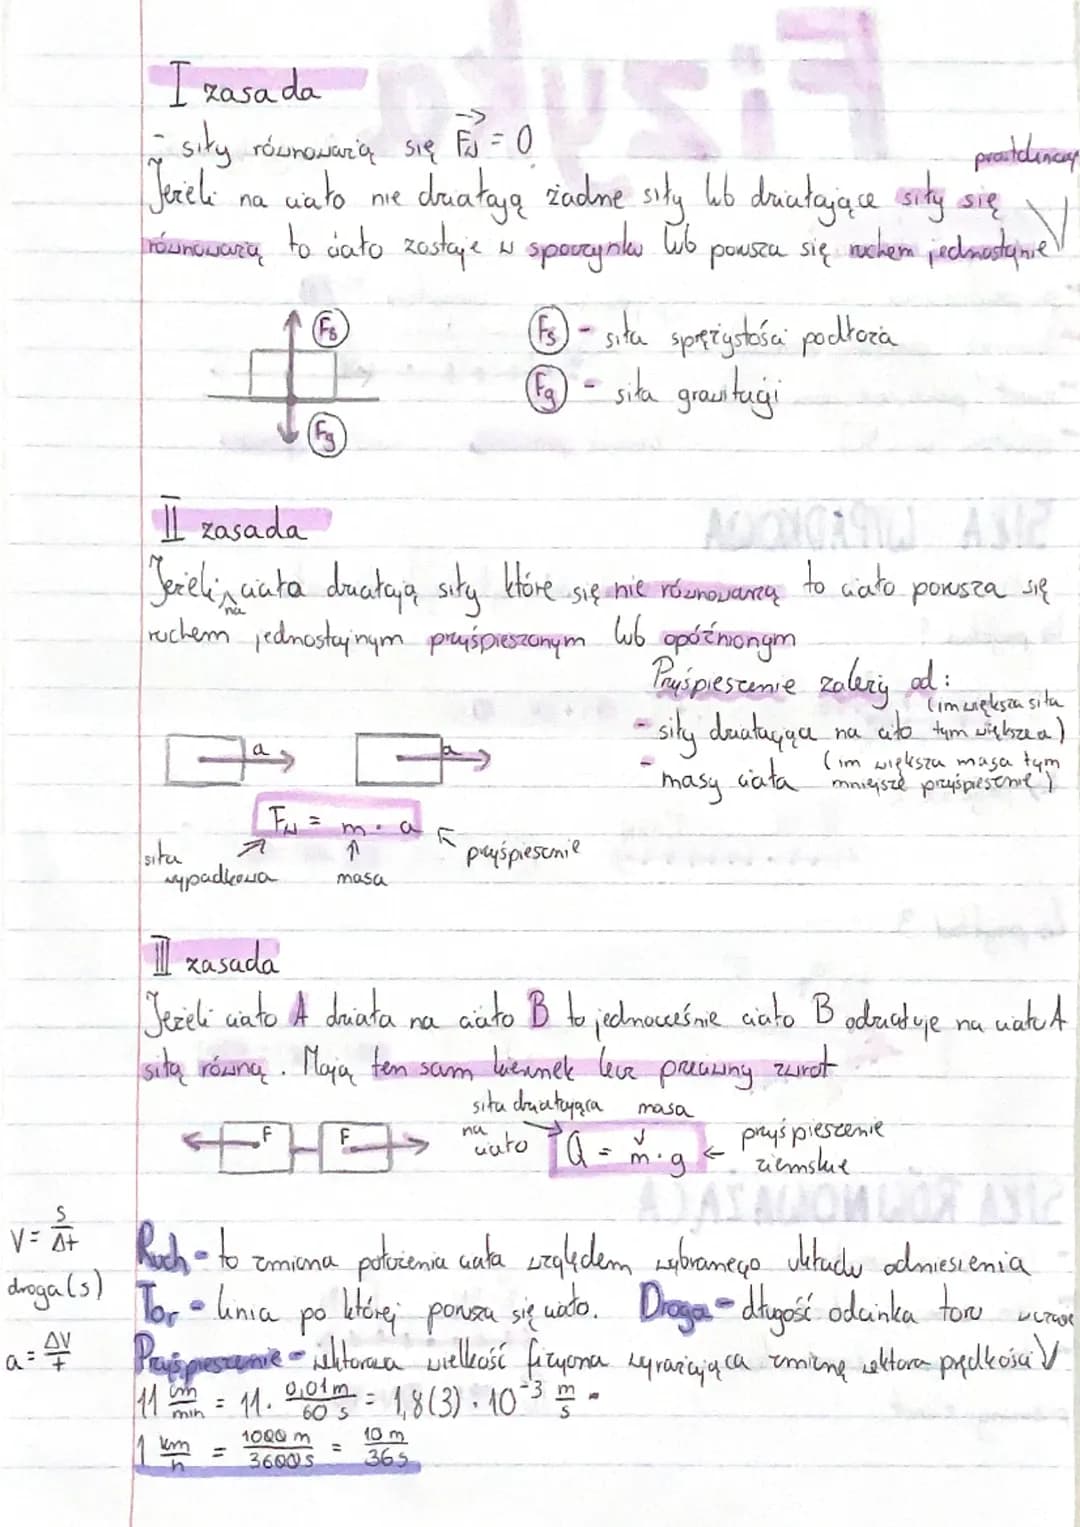 I zasada
- siły równoważą się Fw = 0
prostoliniowy
Jeżeli na ciało nie działają żadne siły lub działające siły się
równoważą to ciało zostaje w spoczynku lub porusza się ruchem jednostajnie V
Fs
Fs - siła sprężystości podłoża
Fg - siła grawitacji
Fg
II zasada
Jeżeli na ciata działają siły które się nie równoważą to ciało porusza się
ruchem jednostajnym przyśpieszonym lub opóźnionym
Przyśpieszenie zależy od:
- siły działającej na ciało (im większa siła tym większe a)
- masy ciała (im większa masa tym mniejsze przyśpieszenie)
a a
Fw = m · a
przyśpiesznie
siła wypadkowa
masa
III zasada
Jeżeli ciało A działa na ciało B to jednocześnie ciało B oddziałuje na ciało A
siłą równą. Mają ten sam kierunek lecz przeciwny zwrot
siła działająca na ciało
masa
F F
Q = m · g
przyśpieszenie ziemskie
V = s/Δt
Ruch - to zmiana położenia ciała względem wybranego układu odniesienia
droga (s)
Tor - linia po której porusza się ciało. Droga - długość odcinka toru
a = ΔV/t
Przyśpieszenie - wektorowa wielkość fizyczna wyrażająca zmianę wektora prędkości V
11 cm/min = 11 · 0,01 m/60 s = 1,8(3) · 10⁻³ m/s
1 km/h = 1000 m/3600 s = 10 m/36 s